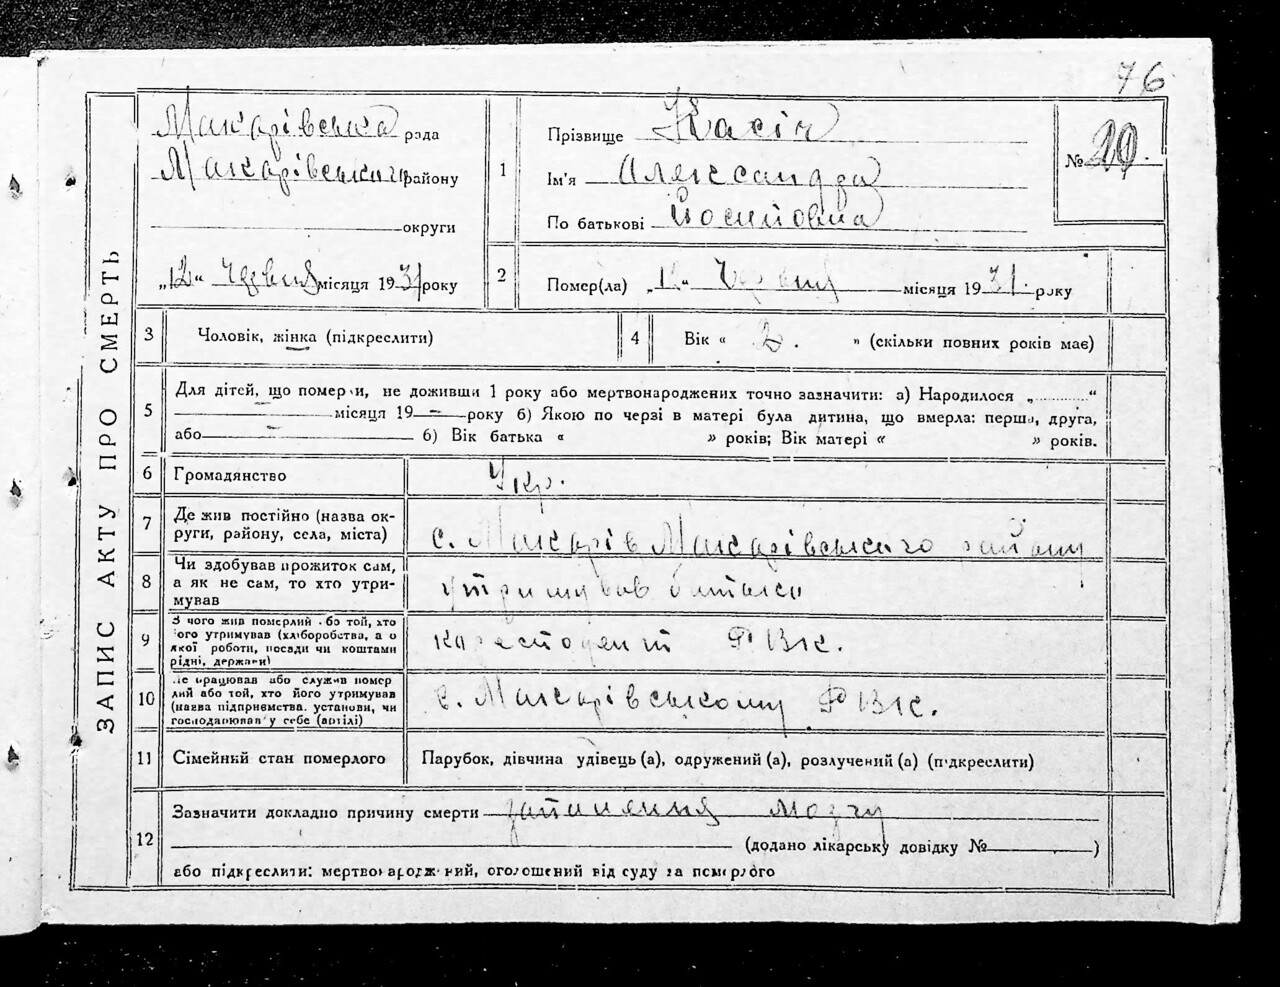 76
ЗАПИС АКТУ ПРО СМЕРТЬ
Макарівська рада
Макарівського району
округи
„12“ Червня місяця 1931 року
1
Прізвище Касіч
Ім'я Александра
По батькові Йосиповна
№ 20.
2
Помер(ла) „12“ Червня місяця 1931. року
3 Чоловік, жінка (підкреслити)
4 Вік « 2. » (скільки повних років має)
5 Для дітей, що померли, не доживши 1 року або мертвонароджених точно зазначити: а) Народилося „ “
місяця 19 року б) Якою по черзі в матері була дитина, що вмерла: перша, друга,
або б) Вік батька « » років; Вік матері « » років.
6 Громадянство Укр.
7 Де жив постійно (назва ок-
руги, району, села, міста) с. Макарів Макарівського району
8 Чи здобував прожиток сам,
а як не сам, то хто утри-
мував утримував батько
9 З чого жив померлий або той, хто
його утримував (хліборобства, а о
якої роботи, посади чи коштами
рідні, держави) РВК.
10 Де працював або служив помер
лий або той, хто його утримував
(назва підприємства. установи, чи
господарював у себе (артілі) в. Макарівському РВК.
11 Сімейний стан померлого Парубок, дівчина удівець (а), одружений (а), розлучений (а) (підкреслити)
12 Зазначити докладно причину смерти запалення мозгу
(додано лікарську довідку № )
або підкреслити: мертвонароджений, оголошений від суду за померлого